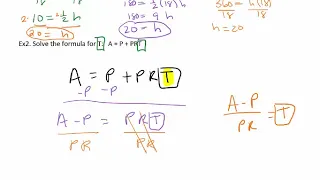 2·10 = ½h·2
20 = h
180 = ½(18)h
180 = 9h
20 = h
360 = h(18)
18 18
h = 20
Ex2. Solve the formula for T. A = P + PRT
A = P + PRT
-P -P
A - P = PRT
PR PR
A-P
PR = T